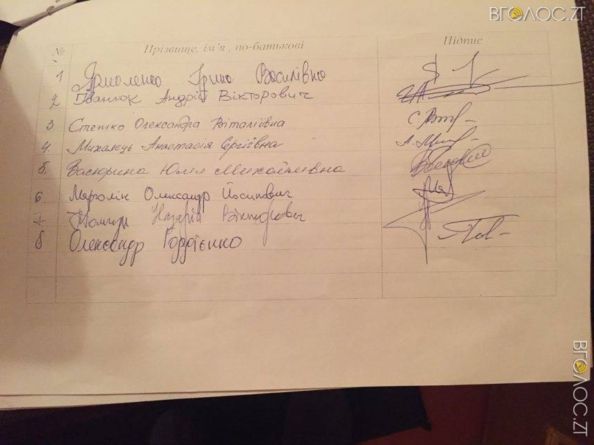 ВГОЛОС.ZT
№ Прізвище, ім'я, по-батькові Підпис
1 Ярмоленко Ірина Василівна
2 Іванюк Андрій Вікторович
3 Степко Олександра Віталіївна
4. Михалець Анастасія Сергіївна
5. Васюрина Юлія Михайлівна
6 Марголік Олександр Йосипович
7 Назарій Вікторович
8 Олександр Гордієнко
ВГОЛОС.ZT